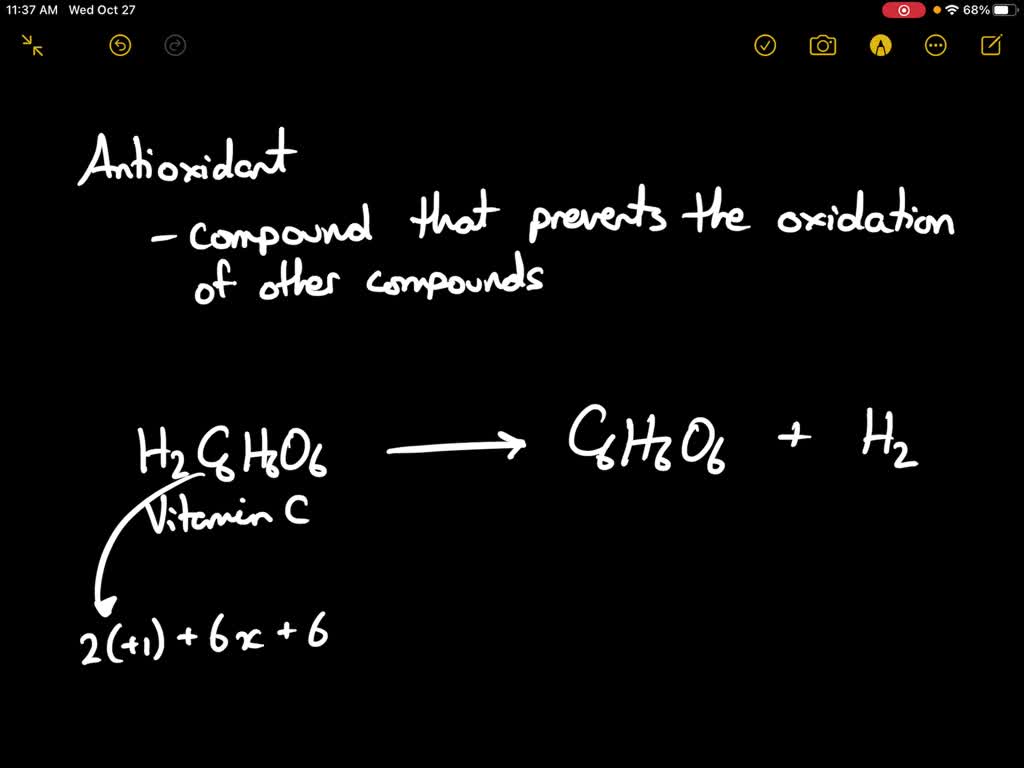 11:37 AM Wed Oct 27 68%
Antioxidant
- compound that prevents the oxidation
of other compounds
H₂C₆H₆O₆ → C₆H₆O₆ + H₂
Vitamin C
2(+1) + 6x + 6